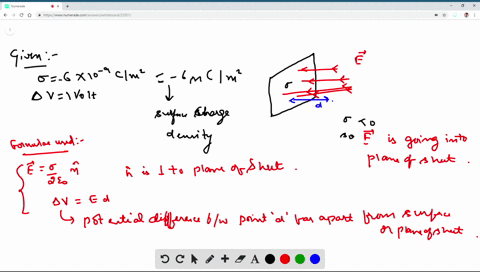 Given:-
σ = -6 × 10⁻⁹ C/m² = -6 n C/m²
ΔV = 1 Volt
surface charge
density
σ
E⃗
d
σ < 0
so E⃗ is going into
plane of sheet.
Formulae used:-
E⃗ = σ/2ε₀ n̂
n̂ is ⊥ to plane of Sheet.
ΔV = E d
potential difference b/w point 'd' far apart from surface
or plane of sheet.